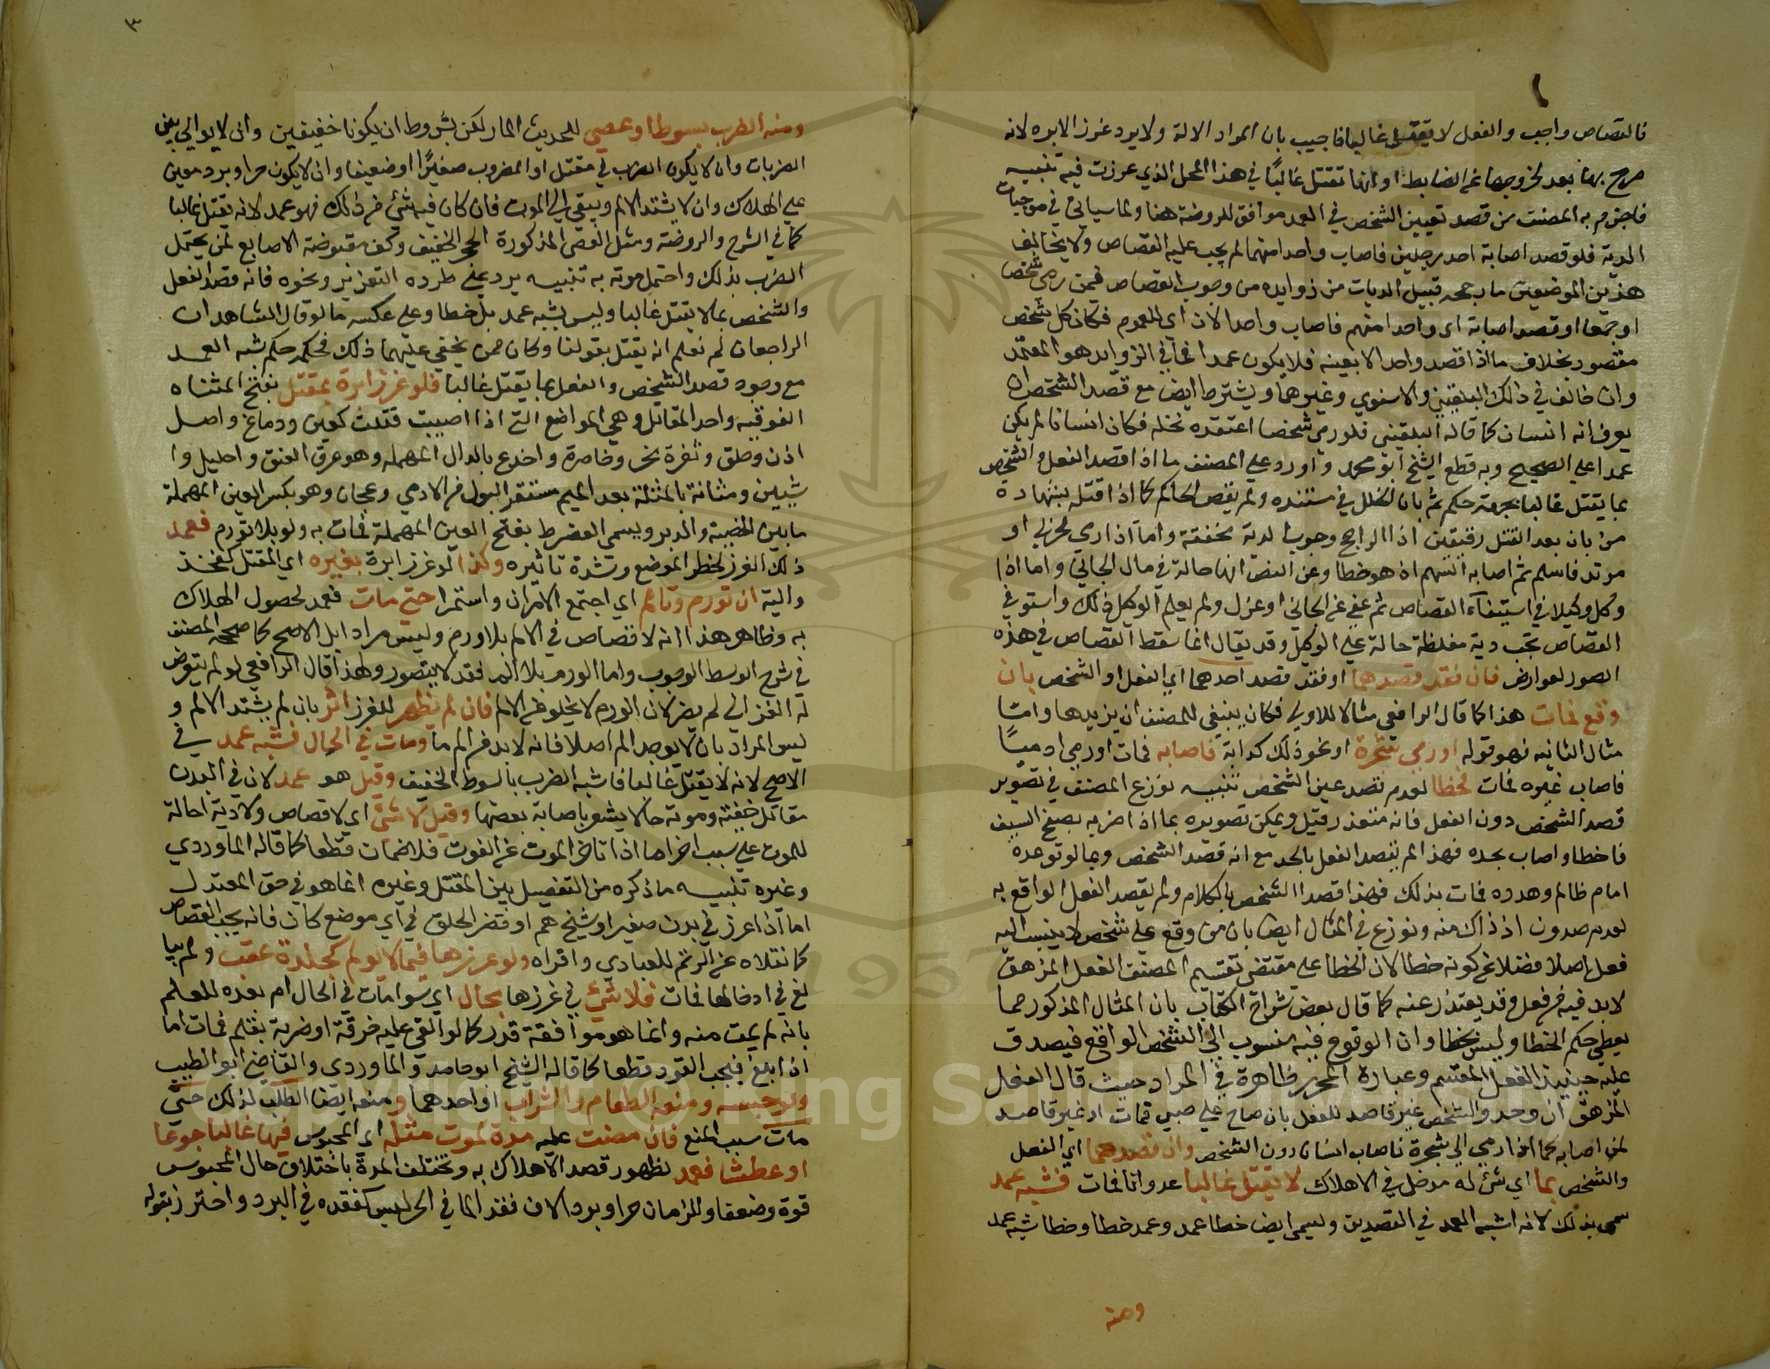 فالقصاص واجب والفعل لا يقتل غالبا فاجيب بان المراد الالة ولا يرد غرز الابره لانه
صرح بها بعد لخروجها عن الضابط او انها تقتل غالبًا في هذا المحل الذي غرزت فيه تنبيه
ما جزم به المصنف من قصد تعيين الشخص في العمد موافق للروضة هنا ولما سيأتي في موجبات
الدية فلو قصد اصابة احد رجلين فاصاب واحدا منهما لم يجب عليه القصاص ولا يخالف
هذين الموضعين ما رجحه قبيل الديات من زوايده من وجوب القصاص فيمن رمى شخصا
او جمعا وقصد اصابة اي واحد منهم فاصاب واحدا لان اي للعموم فكان كل شخص
مقصود بخلاف ما اذا قصد واحدا لا بعينه فلا يكون عمدا فما في الزوايد هو المعتمد
وان خالف في ذلك البلقيني والاسنوي وغيرهما ويشترط ايضا مع قصد الشخص ان
يعرف انه انسان كما قاله البلقيني فلو رمى شخصا اعتقده نخله فكان انسانا لم يكن
عمدا على الصحيح وبه قطع الشيخ ابو محمد واورد على المصنف ما اذا قصد الفعل والشخص
بما يقتل غالبا بجهة حكم ثم بان الخلل في مستنده ولم يقصر الحاكم كما اذا قتل بشهادة
من بان بعد القتل رقيقين اذ الراجح وجوب الدية مخففة واما اذا رمى لحربي او
مرتد فاسلم ثم اصابه السهم اذ هو خطا وعن النص انها حالة في مال الجاني واما اذا
وكل وكيلا في استيفآء القصاص ثم عفى عن الجاني او عزل ولم يعلم الوكيل ذلك واستوفي
القصاص تجب دية مغلظة حالة على الوكيل وقد يقال انما سقط القصاص في هذه
الصور لعوارض فان فقد قصدهما او فقد قصد احدهما اي الفعل او الشخص بان
وقع فمات هذا كما قال الرافعي مثالا للاولى فكان ينبغي للمصنف ان يزيدها وامّا
مثال الثانيه فهو قوله او رمى شجرة او نحو ذلك كدابة فاصابه فمات او رمى ادميا
فاصاب غيره فمات فخطا لعدم قصد عين الشخص تنبيه نوزع المصنف في تصوير
قصد الشخص دون الفعل فانه متعذر قيل ويمكن تصويره بما اذا ضربه بصفح السيف
فاخطا واصاب بحده فهذا لم يقصد الفعل بالحد مع انه قصد الشخص وبما لو توعده
امام ظالم وهدده فمات بذلك فهذا قصد الشخص بالكلام ولم يقصد الفعل الواقع به
لعدم صدور اذ ذاك منه ونوزع في المثال ايضا بان من وقع على شخص لا ينسب اليه
فعل اصلا فضلا عن كونه خطا لان الخطا على مقتضى تقسيم المصنف الفعل المزهق
لابد فيه من فعل وقد يعتذر عنه كما قال بعض شراح الكتاب بان المثال المذكور مما
يعطى حكم الخطا وليس بخطا وان الوقوع فيه منسوب الى الشخص الواقع فيصدق
عليه حينيذ الفعل المقسم وعبارة المحرر ظاهرة في المراد حيث قال الفعل
المزهق ان وجد والشخص غير قاصد للفعل بان صاح على صبي فمات او غير قاصد
لمن اصابه كما اذا رمى الى شجرة فاصاب انسانا دون الشخص وان قصدهما اي الفعل
والشخص بما اي شئ له مدخل في الاهلاك لا يقتل غالبا عدوانا فمات فشبه عمد
سمى بذلك لانه اشبه العمد في القصدين ويسمى ايضا خطا عمد وعمد خطا وخطا شبه عمد
ومنه
٣
ومنه الضرب بسوط او عصى للحديث المار لكن بشروط ان يكونا خفيفين وان لا يوالي بين
الضربات وان لا يكون الضرب في مقتل او المضروب صغيرًا او ضعيفا وان لا يكون حرا وبرد معين
على الهلاك وان لا يشتد الالم ويبقى الى الموت فان كان فيه شئ من ذلك فهو عمد لانه يقتل غالبا
كما في الشرح والروضة ومثل العصى المذكورة الحجر الخفيف وكف مقبوضة الاصابع لمن يحتمل
الضرب بذلك واحتمل موته به تنبيه يرد على طرده التعزير ونحوه فانه قصد الفعل
والشخص بما لا يقتل غالبا وليس بشبه عمد بل خطا وعلى عكسه ما لو قال الشاهدان
الراجعان لم نعلم انه يقتل بقولنا وكان ممن يخفى عليهما ذلك فحكمه حكم شبه العمد
مع وجود قصد الشخص والفعل بما يقتل غالبا فلو غرز ابرة بمقتل بفتح المثناه
الفوقيه واحد المقاتل وهي المواضع التي اذا اصيبت قتلت كعين ودماغ واصل
اذن وحلق وثغرة نحر وخاصرة واخدع بالدال المهمله وهو عرق العنق واحليل وا
نثيين ومثانة بالمثلثة بعد الميم مستقر البول من الادمي وعجان وهو بكسر العين المهملة
ما بين الخصية والدبر ويسمى العضرط بفتح العين المهملة فمات به ولو بلا تورم فعمد
ذلك الغرز لخطر الموضع وشدة تاثيره وكذا لو غرز ابرة بغيره اي المقتل كفخذ
والية ان تورم وتالم اي اجتمع الامران واستمرا حتى مات فعمد لحصول الهلاك
به وظاهر هذا انه لا قصاص في الالم بلا ورم وليس مرادا بل الاصح كما صححه المصنف
في شرح الوسط الوجوب واما الورم بلا الم فقد لا يتصور ولهذا قال الرافعي لو لم يتعرض
له الغزالي لم يضر لان الورم لا يخلو عن الالم فان لم يظهر للغرز اثر بان لم يشتد الالم و
ليس المراد بان لا يوجد الم اصلا فانه لابد من الم ما ومات في الحال فشبه عمد في
الاصح لانه لا يقتل غالبا فاشبه الضرب بالسوط الخفيف وقيل هو عمد لان في البدن
مقاتل خفيفة وموته حالا يشعر باصابة بعضها وقيل لا شئ اي لا قصاص ولا دية احالة
للموت على سبب اخر اما اذا تاخر الموت عن الغرز فلا ضمان قطعا كما قاله الماوردي
وغيره تنبيه ما ذكره من التفصيل بين المقتل وغيره انما هو في حق المعتدل
اما اذا غرز في بدن صغير او شيخ هم او نضو الخلق في اي موضع كان فانه يجب القصاص
كما نقلاه عن الرقم للعبادي واقراه ولو غرزها فيما لا يولم كجلدة عقب ولم يبا
لغ في ادخالها فمات فلا شئ في غرزها بحال اي سوا مات في الحال ام بعده للعلم
بانه لم يمت منه وانما هو موافقة قدر كما لو القي عليه خرقة او ضربة بقلم فمات اما
اذا ابلغ فيجب القود قطعا كما قاله الشيخ ابو حامد والماوردي والقاضي ابو الطيب
ولو حبسه ومنعه الطعام والشراب او احدهما ومنعه ايضا الطلب لذلك حتى
مات بسبب المنع فان مضت عليه مدة يموت مثله اي المحبوس فيها غالبا جوعا
او عطشا فعمد لظهور قصد الاهلاك به وتختلف المدة باختلاف حال المحبوس
قوة وضعفا والزمان حرا وبردا لان فقد الما في الحر ليس كفقده في البرد واحترز بقوله